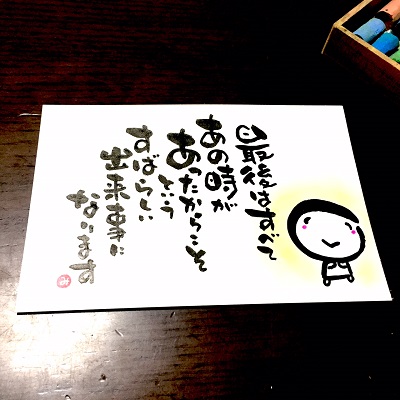 最後はすべて
あの時が
あったからこそ
という
すばらしい
出来事に
なります